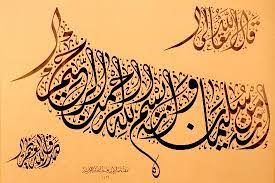 قال الله تعالى
إنه من سليمان وإنه بسم الله الرحمن الرحيم
صدق الله العظيم